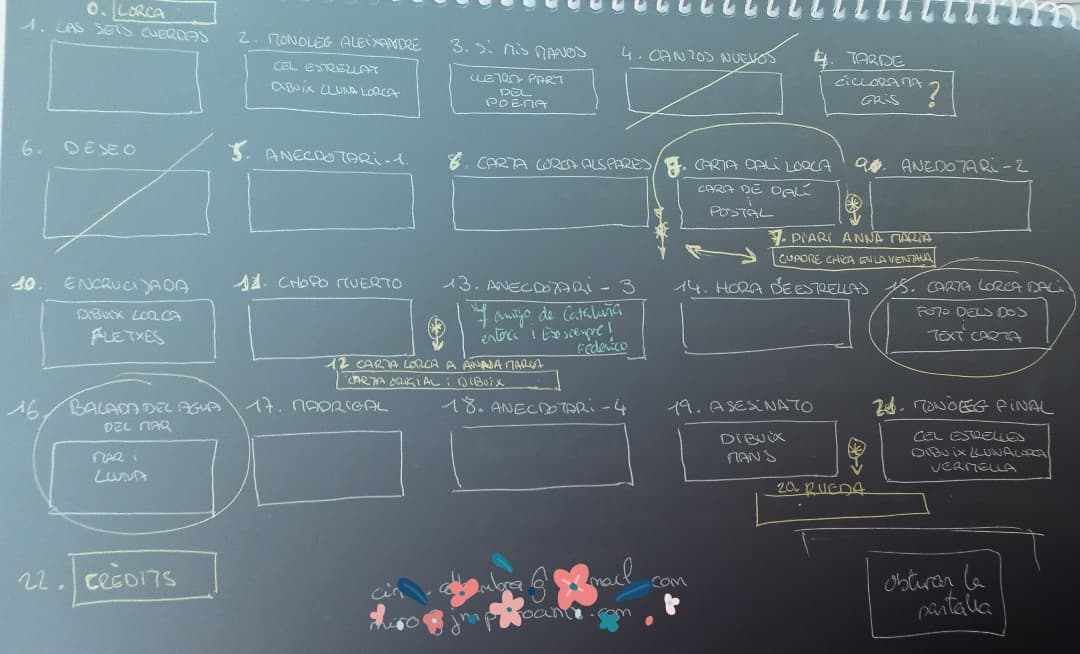 0. LORCA
1. LAS SEIS CUERDAS
2. MONÒLEG ALEIXANDRE
CEL ESTRELLAT
DIBUIX LLUNA LORCA
3. SI MIS MANOS
LLETRA PART
DEL
POEMA
4. CANTOS NUEVOS
4. TARDE
CICLORAMA
GRIS ?
6. DESEO
5. ANECDOTARI-1.
6. CARTA LORCA ALS PARES
8. CARTA DALÍ LORCA
CARA DE DALÍ
i
POSTAL
9. ANEDOTARI-2
7. DIARI ANNA MARIA
QUADRE CHICA EN LA VENTANA
10. ENCRUCIJADA
DIBUIX LORCA
FLETXES
11. CHOPO MUERTO
13. ANECDOTARI - 3
amigo de Cataluña
entera ¡Eso siempre!
Federico
14. HORA DE ESTRELLAS
15. CARTA LORCA DALÍ
FOTO DELS DOS
i
TEXT CARTA
12 CARTA LORCA A ANNA MARIA
CARTA ORIGIAL i DIBUIX
16. BALADA DEL AGUA
DEL MAR
MAR i
LLUNA
17. MADRIGAL
18. ANECDOTARI-4
19. ASESINATO
DIBUIX
MANS
21. MONÒLEG FINAL
CEL ESTRELLES
DIBUIX LLUNA LORCA
VERMELLA
20. RUEDA
22. CRÈDITS
mail.com
.com
obturar la
pantalla